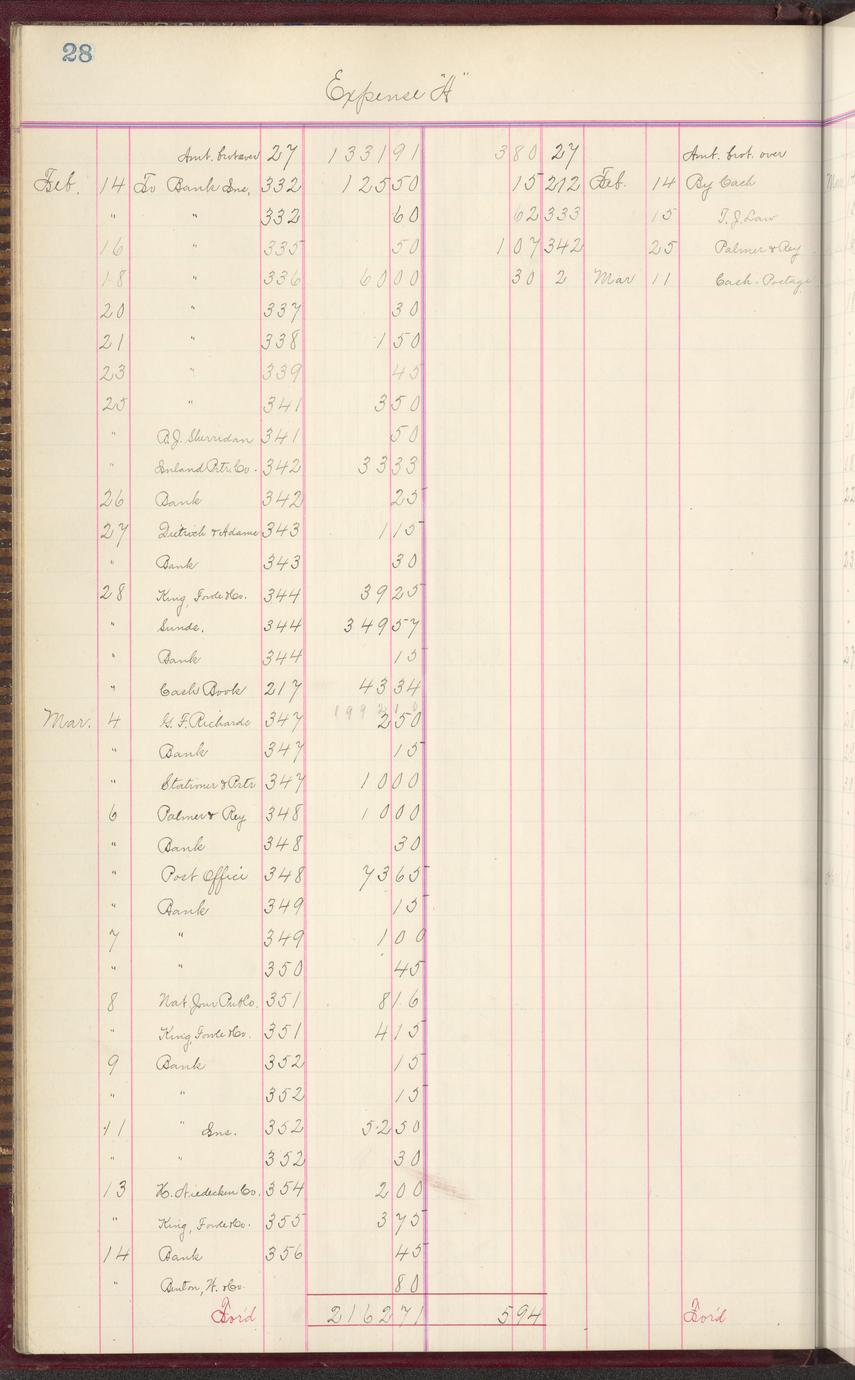 28
Expense "A"
Amt. brot over 27 1331 91 3 80 27 Amt. brot. over
Feb. 14 To Bank Ins. 332 125 50 15 212 Feb. 14 By Cash
" " 332 60 62 333 15 T. J. Law
16 " 335 50 1 07 342 25 Palmer & Rey
18 " 336 60 00 30 2 Mar 11 Cash-Postage
20 " 337 30
21 " 338 1 50
23 " 339 45
25 " 341 3 50
" P. J. Sherridan 341 50
" Inland Prtr. Co. 342 33 33
26 Bank 342 25
27 Dietrich & Adams 343 1 15
" Bank 343 30
28 King, Fowle & Co. 344 39 25
" Sunds. 344 349 57
" Bank 344 15
" Cash Book 217 43 34
Mar. 4 G. F. Richards 347 2 50
" Bank 347 15
" Stationer & Prtr 347 10 00
6 Palmer & Rey 348 10 00
" Bank 348 30
" Post Office 348 73 65
" Bank 349 15
7 " 349 1 00
" " 350 45
8 Nat. Jour Pub Co. 351 8 16
" King, Fowle & Co. 351 4 15
9 Bank 352 15
" " 352 15
11 " Ins. 352 52 50
" " 352 30
13 H. Niedecken Co. 354 2 00
" King, Fowle & Co. 355 3 75
14 Bank 356 45
" Benton, W. & Co. 80
For'd 2162 71 5 94 For'd